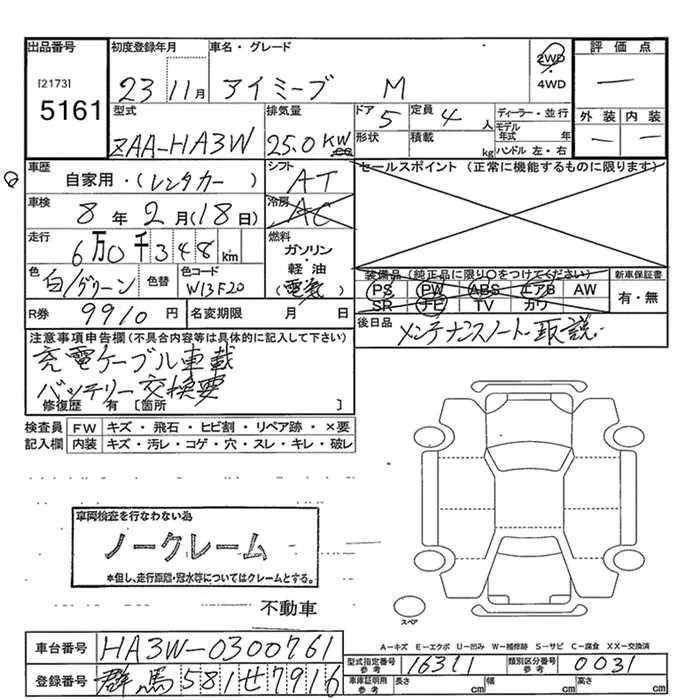 出品番号 初度登録年月 車名・グレード 2WD 評価点
[2173] 23 11月 アイミーブ M 4WD —
5161 型式 排気量 ドア 定員 ディーラー・並行 外装 内装
ZAA-HA3W 25.0 KW cc 5 4人 モデル年式 年 — —
形状 積載 kg ハンドル 左・右
車歴 自家用・(レンタカー) シフト AT セールスポイント (正常に機能するものに限ります)
車検 8年2月(18日) 冷房 AC
走行 6万0千348km 燃料 ガソリン・軽油(電気)
装備品(純正品に限り○をつけてください) 新車保証書
色 白/グリーン 色替 色コード W13F20 PS PW ABS エアB AW 有・無
SR ナビ TV カワ
R券 9910円 名変期限 月 日 後日品 メンテナンスノート 取説
注意事項申告欄(不具合内容等は具体的に記入して下さい)
充電ケーブル車載
バッテリー交換要
修復歴 有〔箇所 〕
検査員 FW キズ・飛石・ヒビ割・リペア跡・×要
記入欄 内装 キズ・汚レ・コゲ・穴・スレ・キレ・破レ
車両検査を行なわない為
ノークレーム
*但し、走行距離・冠水等についてはクレームとする。
不動車 スペア
A-キズ E-エクボ U-凹み W-補修跡 S-サビ C-腐食 XX-交換済
車台番号 HA3W-0300761 型式指定番号 参考 16311 類別区分番号 参考 0031
登録番号 群馬581せ7916 車庫証明用 参考 長さ cm 幅 cm 高さ cm